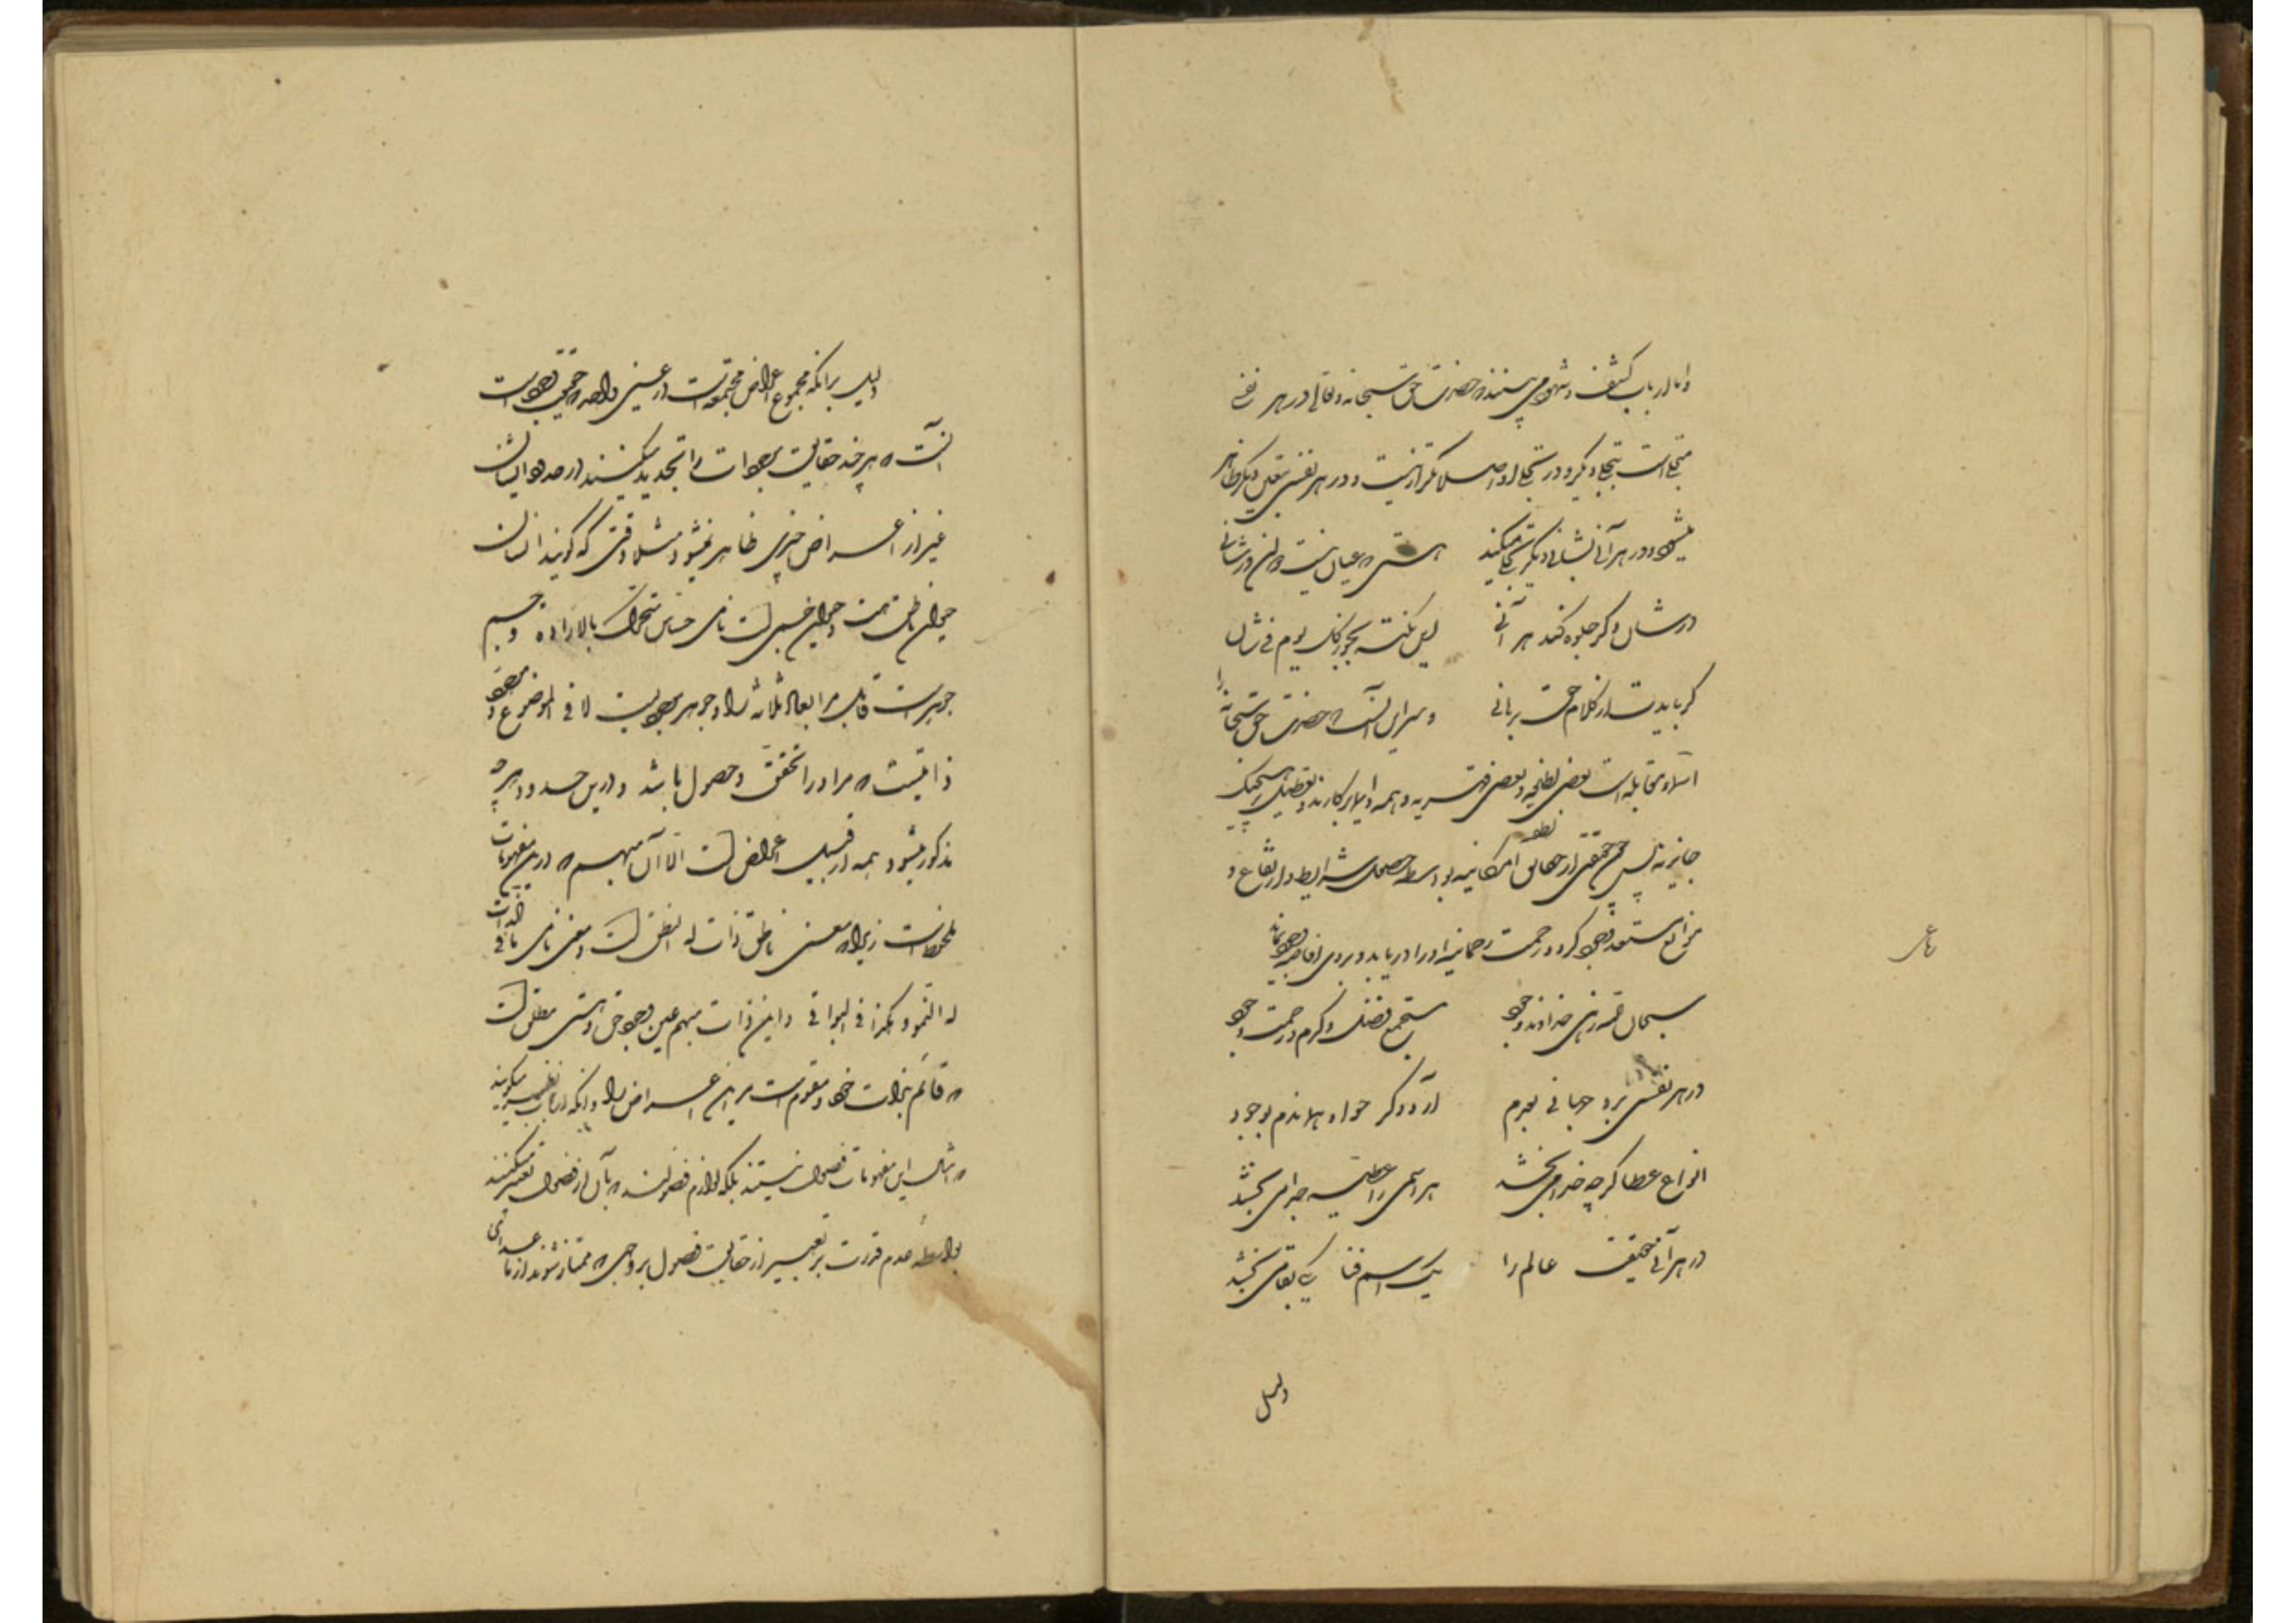 واما ارباب کشف و شهود می بینند که حضرت حق سبحانه و تعالی در هر نفسی
متجلی است بتجلی دیگر و در تجلی او اصلا تکرار نیست و در هر نفسی بتعینی دیگر ظاهر
میشود و در هر آنی بشانی دیگر تجلی میکند هستی که عیان نیست دو آن در شانی
در شان دگر جلوه کند هر آنی این نکته بجو ز کل یوم فی شان
گر بایدت از کلام حق برهانی و سر این آنست که حضرت حق سبحانه را
اسماء متقابله است بعضی لطفیه و بعضی قهریه و همه دایما در کارند و تعطیل بر هیچیک
جایز نه پس چون حقیقتی از حقایق امکانیه بواسطه حصول شرایط و ارتفاع
موانع مستعد وجود گردد رحمت رحمانیه او را دریابد و بر وی افاضه وجود نماید
سبحان قهرزهی خداوند ودود مستجمع فضل و کرم و رحمت وجود
در هر نفسی برد جهانی بعدم آرد دگری چو او هماندم بوجود
انواع عطا گرچه خدا می بخشد هر اسمی را عطیه جدا می بخشد
در هر آنی حقیقت عالم را یک اسم فنا یکی بقا می بخشد
دلیل
دلیل برآنکه مجموع اعراض مجتمعه است در عین واحد که حقیقت وجود است
آنست که هر چند حقایق موجودات را تحدید میکنند در حدود ایشان
غیر از اعراض چیزی ظاهر نمیشود مثلا وقتی که گویند انسان
حیوان ناطق است و حیوان جسمی است نامی حساس متحرک بالاراده و جسم
جوهریست قابل مر ابعاد ثلاثه را و جوهر موجودیست لا فی الموضوع و موجود
ذاتیست که مر او را تحقق و حصول باشد و درین حدود هر چه
مذکور میشود همه از قبیل اعراض است الا آن ذات مبهم که درین مفهومات
ملحوظ است زیرا که معنی ناطق ذات له النطق است و معنی نامی ذات
له النمو و هکذا فی البواقی و این ذات مبهم عین وجود حق و هستی مطلق است
که قائم بذات خود و مقوم است مر این اعراض را و آنکه ارباب نظر میگویند
که امثال این مفهومات فصول نیستند بلکه لوازم فصولند که بآن از فصول تعبیر میکنند
بواسطه عدم قدرت بر تعبیر از حقایق فصول بر وجهی که ممتاز شوند از ما عدای